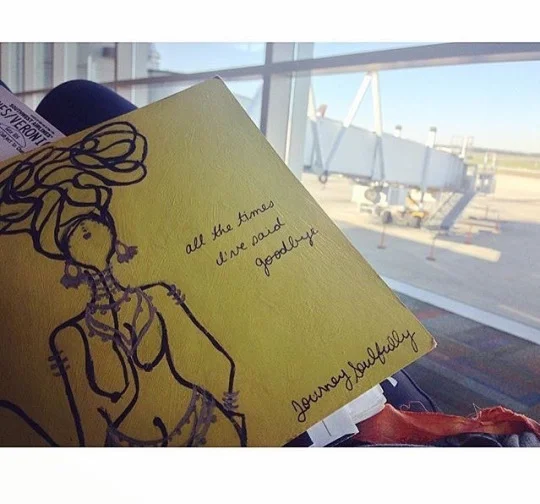 all the times
I've said
goodbye
Journey Soulfully